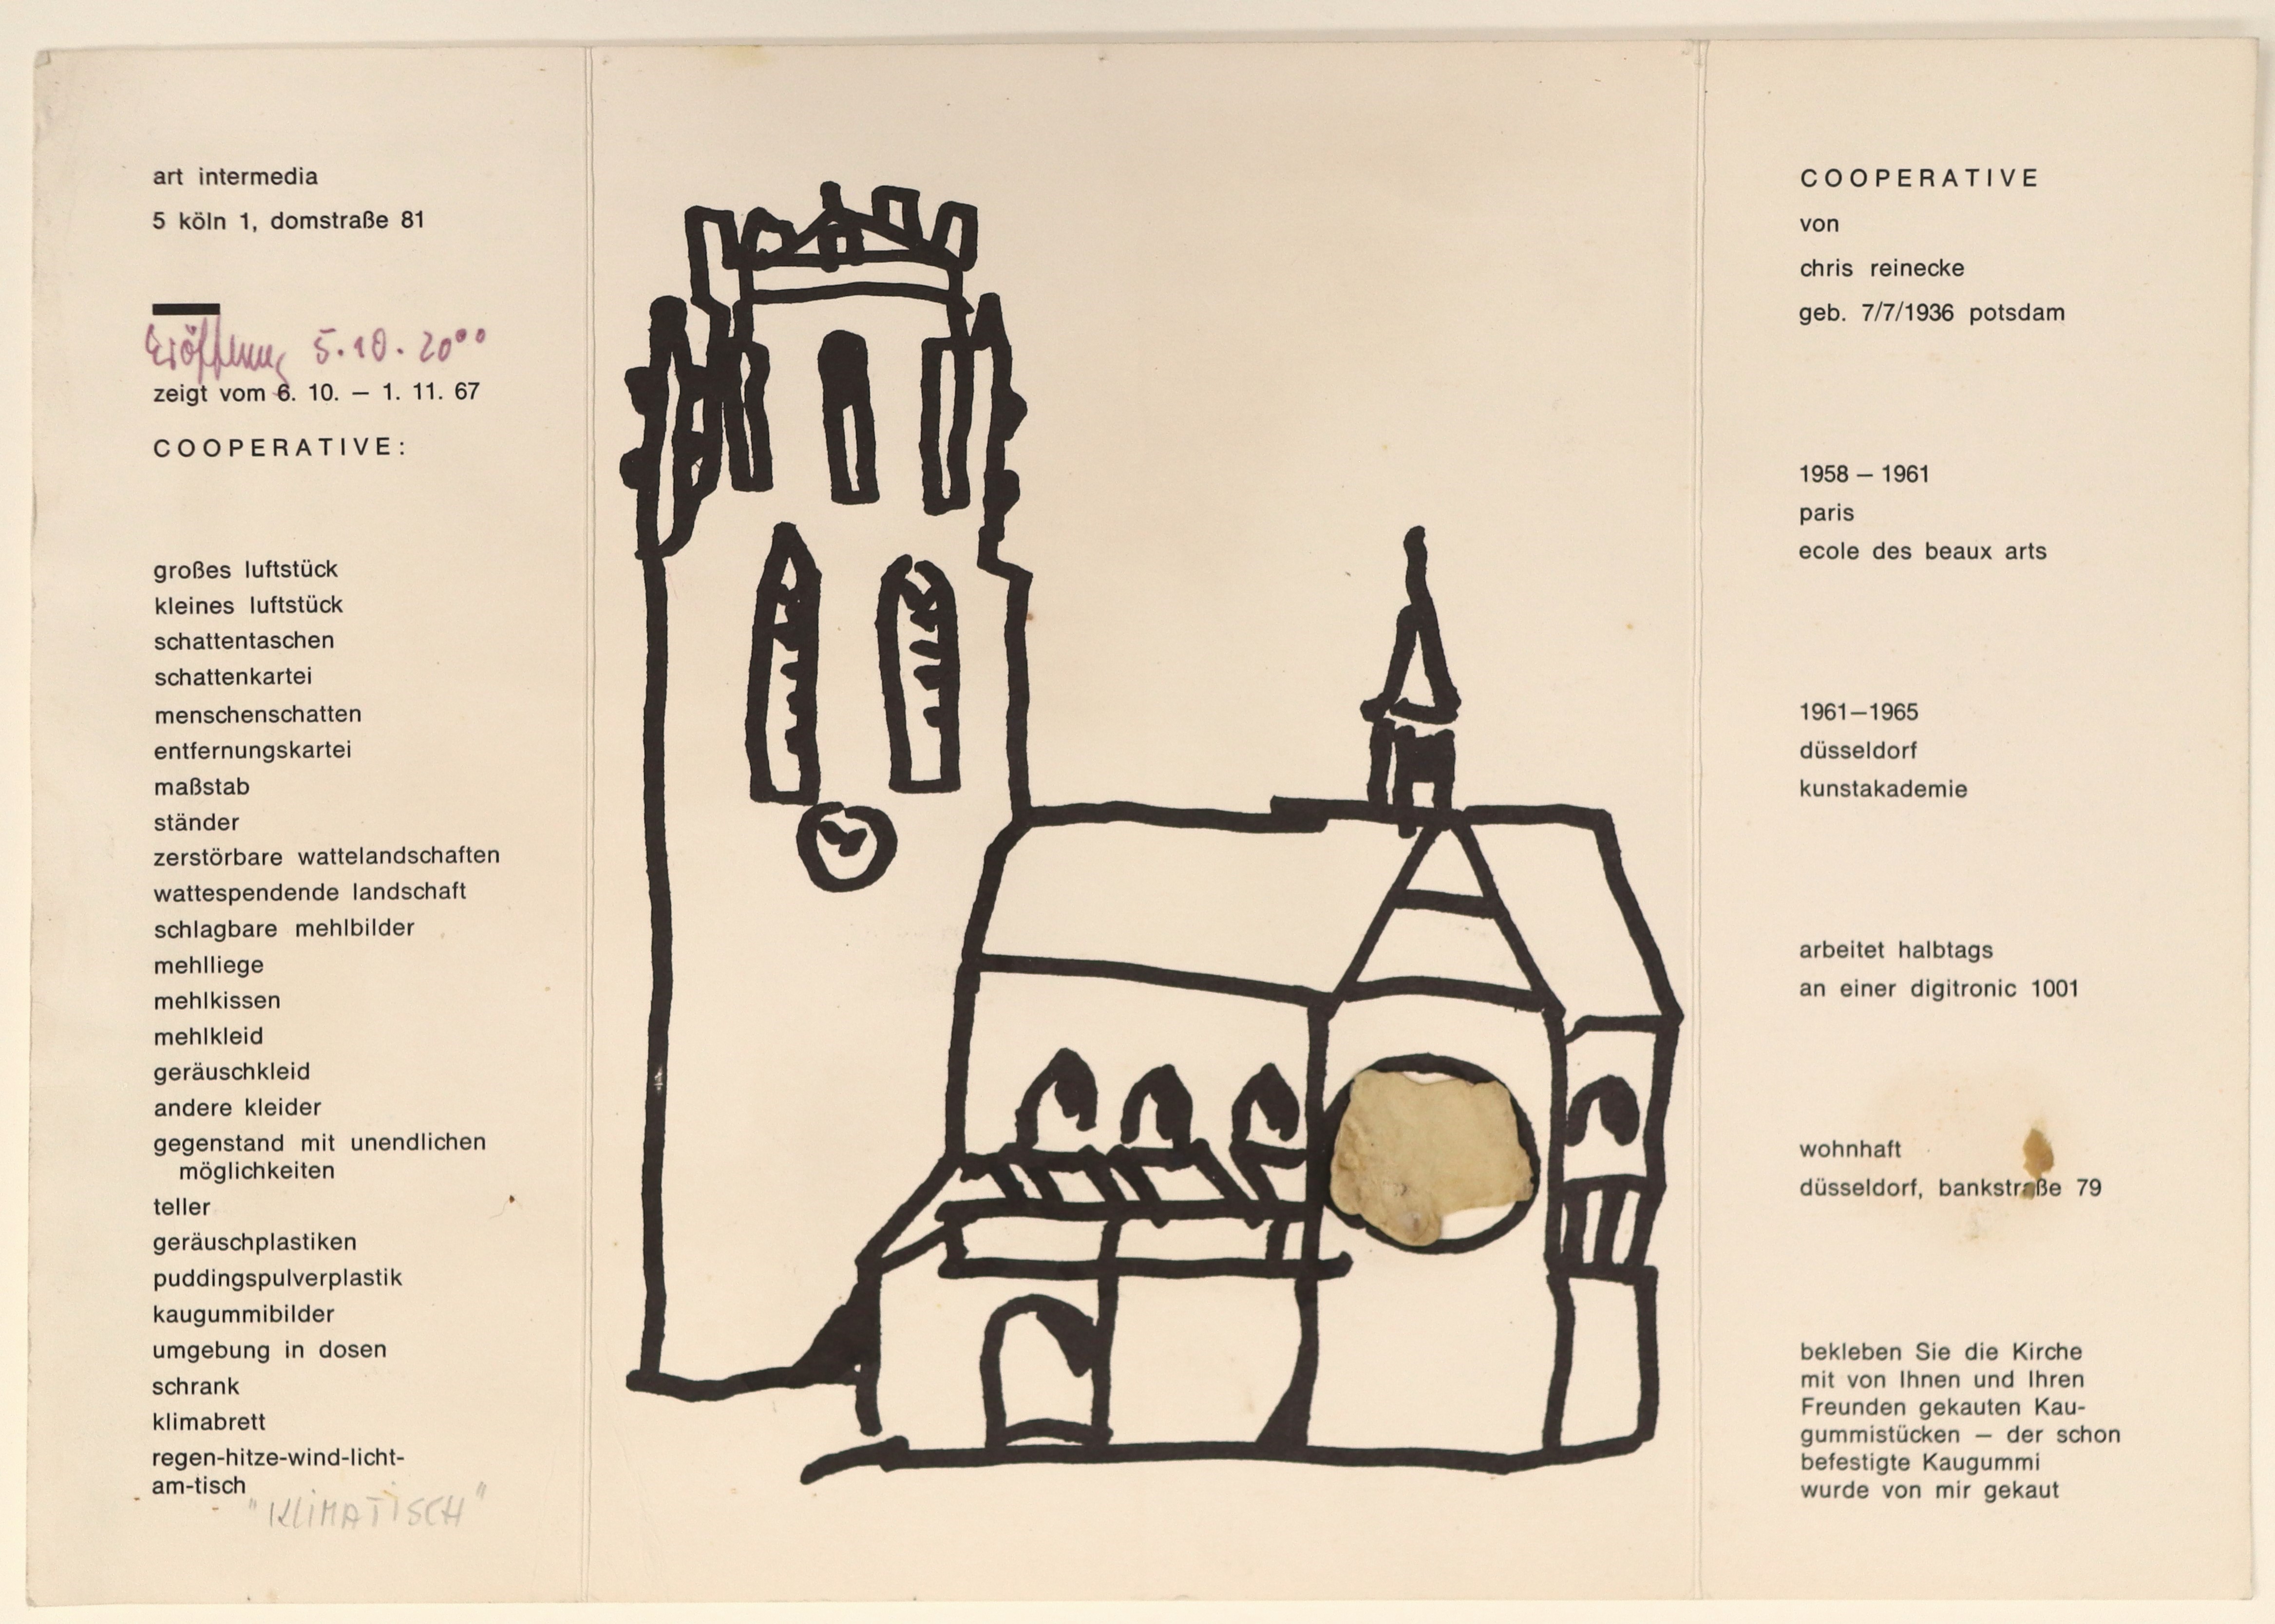 art intermedia
5 köln 1, domstraße 81
Eröffnung 5.10. 20⁰⁰
zeigt vom 6. 10. — 1. 11. 67
COOPERATIVE:
großes luftstück
kleines luftstück
schattentaschen
schattenkartei
menschenschatten
entfernungskartei
maßstab
ständer
zerstörbare wattelandschaften
wattespendende landschaft
schlagbare mehlbilder
mehlliege
mehlkissen
mehlkleid
geräuschkleid
andere kleider
gegenstand mit unendlichen
möglichkeiten
teller
geräuschplastiken
puddingspulverplastik
kaugummibilder
umgebung in dosen
schrank
klimabrett
regen-hitze-wind-licht-
am-tisch
"KLIMATISCH"
COOPERATIVE
von
chris reinecke
geb. 7/7/1936 potsdam
1958 — 1961
paris
ecole des beaux arts
1961—1965
düsseldorf
kunstakademie
arbeitet halbtags
an einer digitronic 1001
wohnhaft
düsseldorf, bankstraße 79
bekleben Sie die Kirche
mit von Ihnen und Ihren
Freunden gekauten Kau-
gummistücken — der schon
befestigte Kaugummi
wurde von mir gekaut